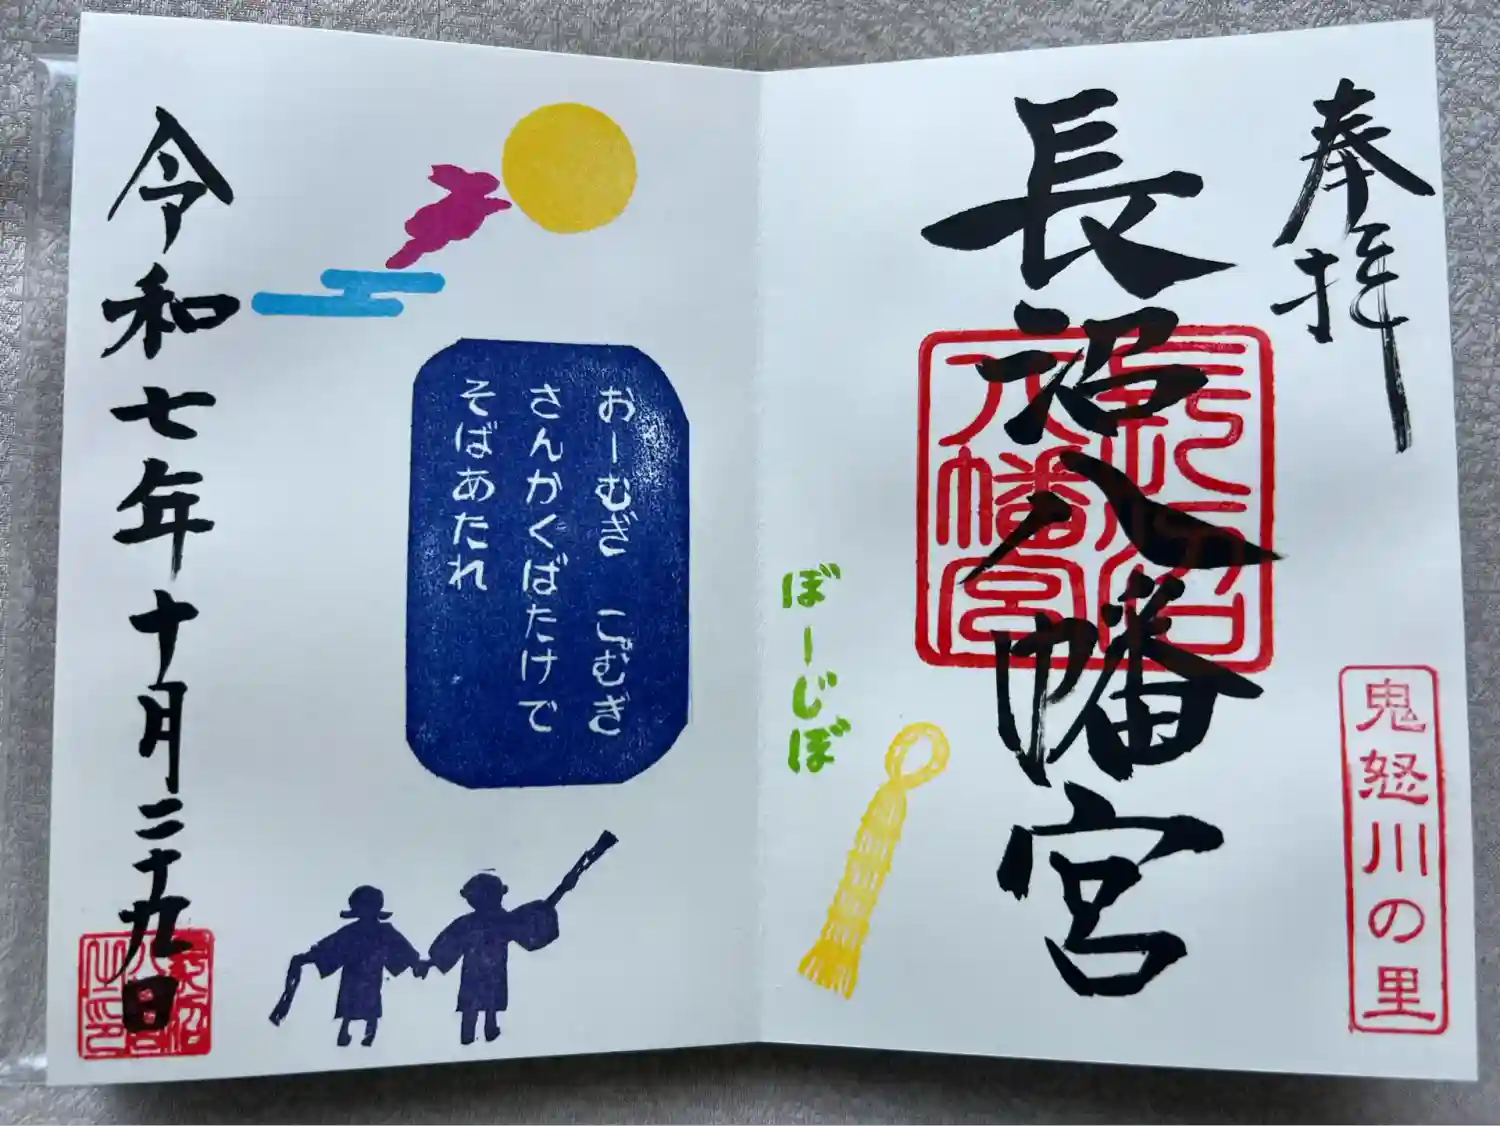 奉拝
長沼八幡宮
長沼
八幡宮
鬼怒川の里
ぼーじぼ
おーむぎ こむぎ
さんかくばたけで
そばあたれ
令和七年十月二十九日